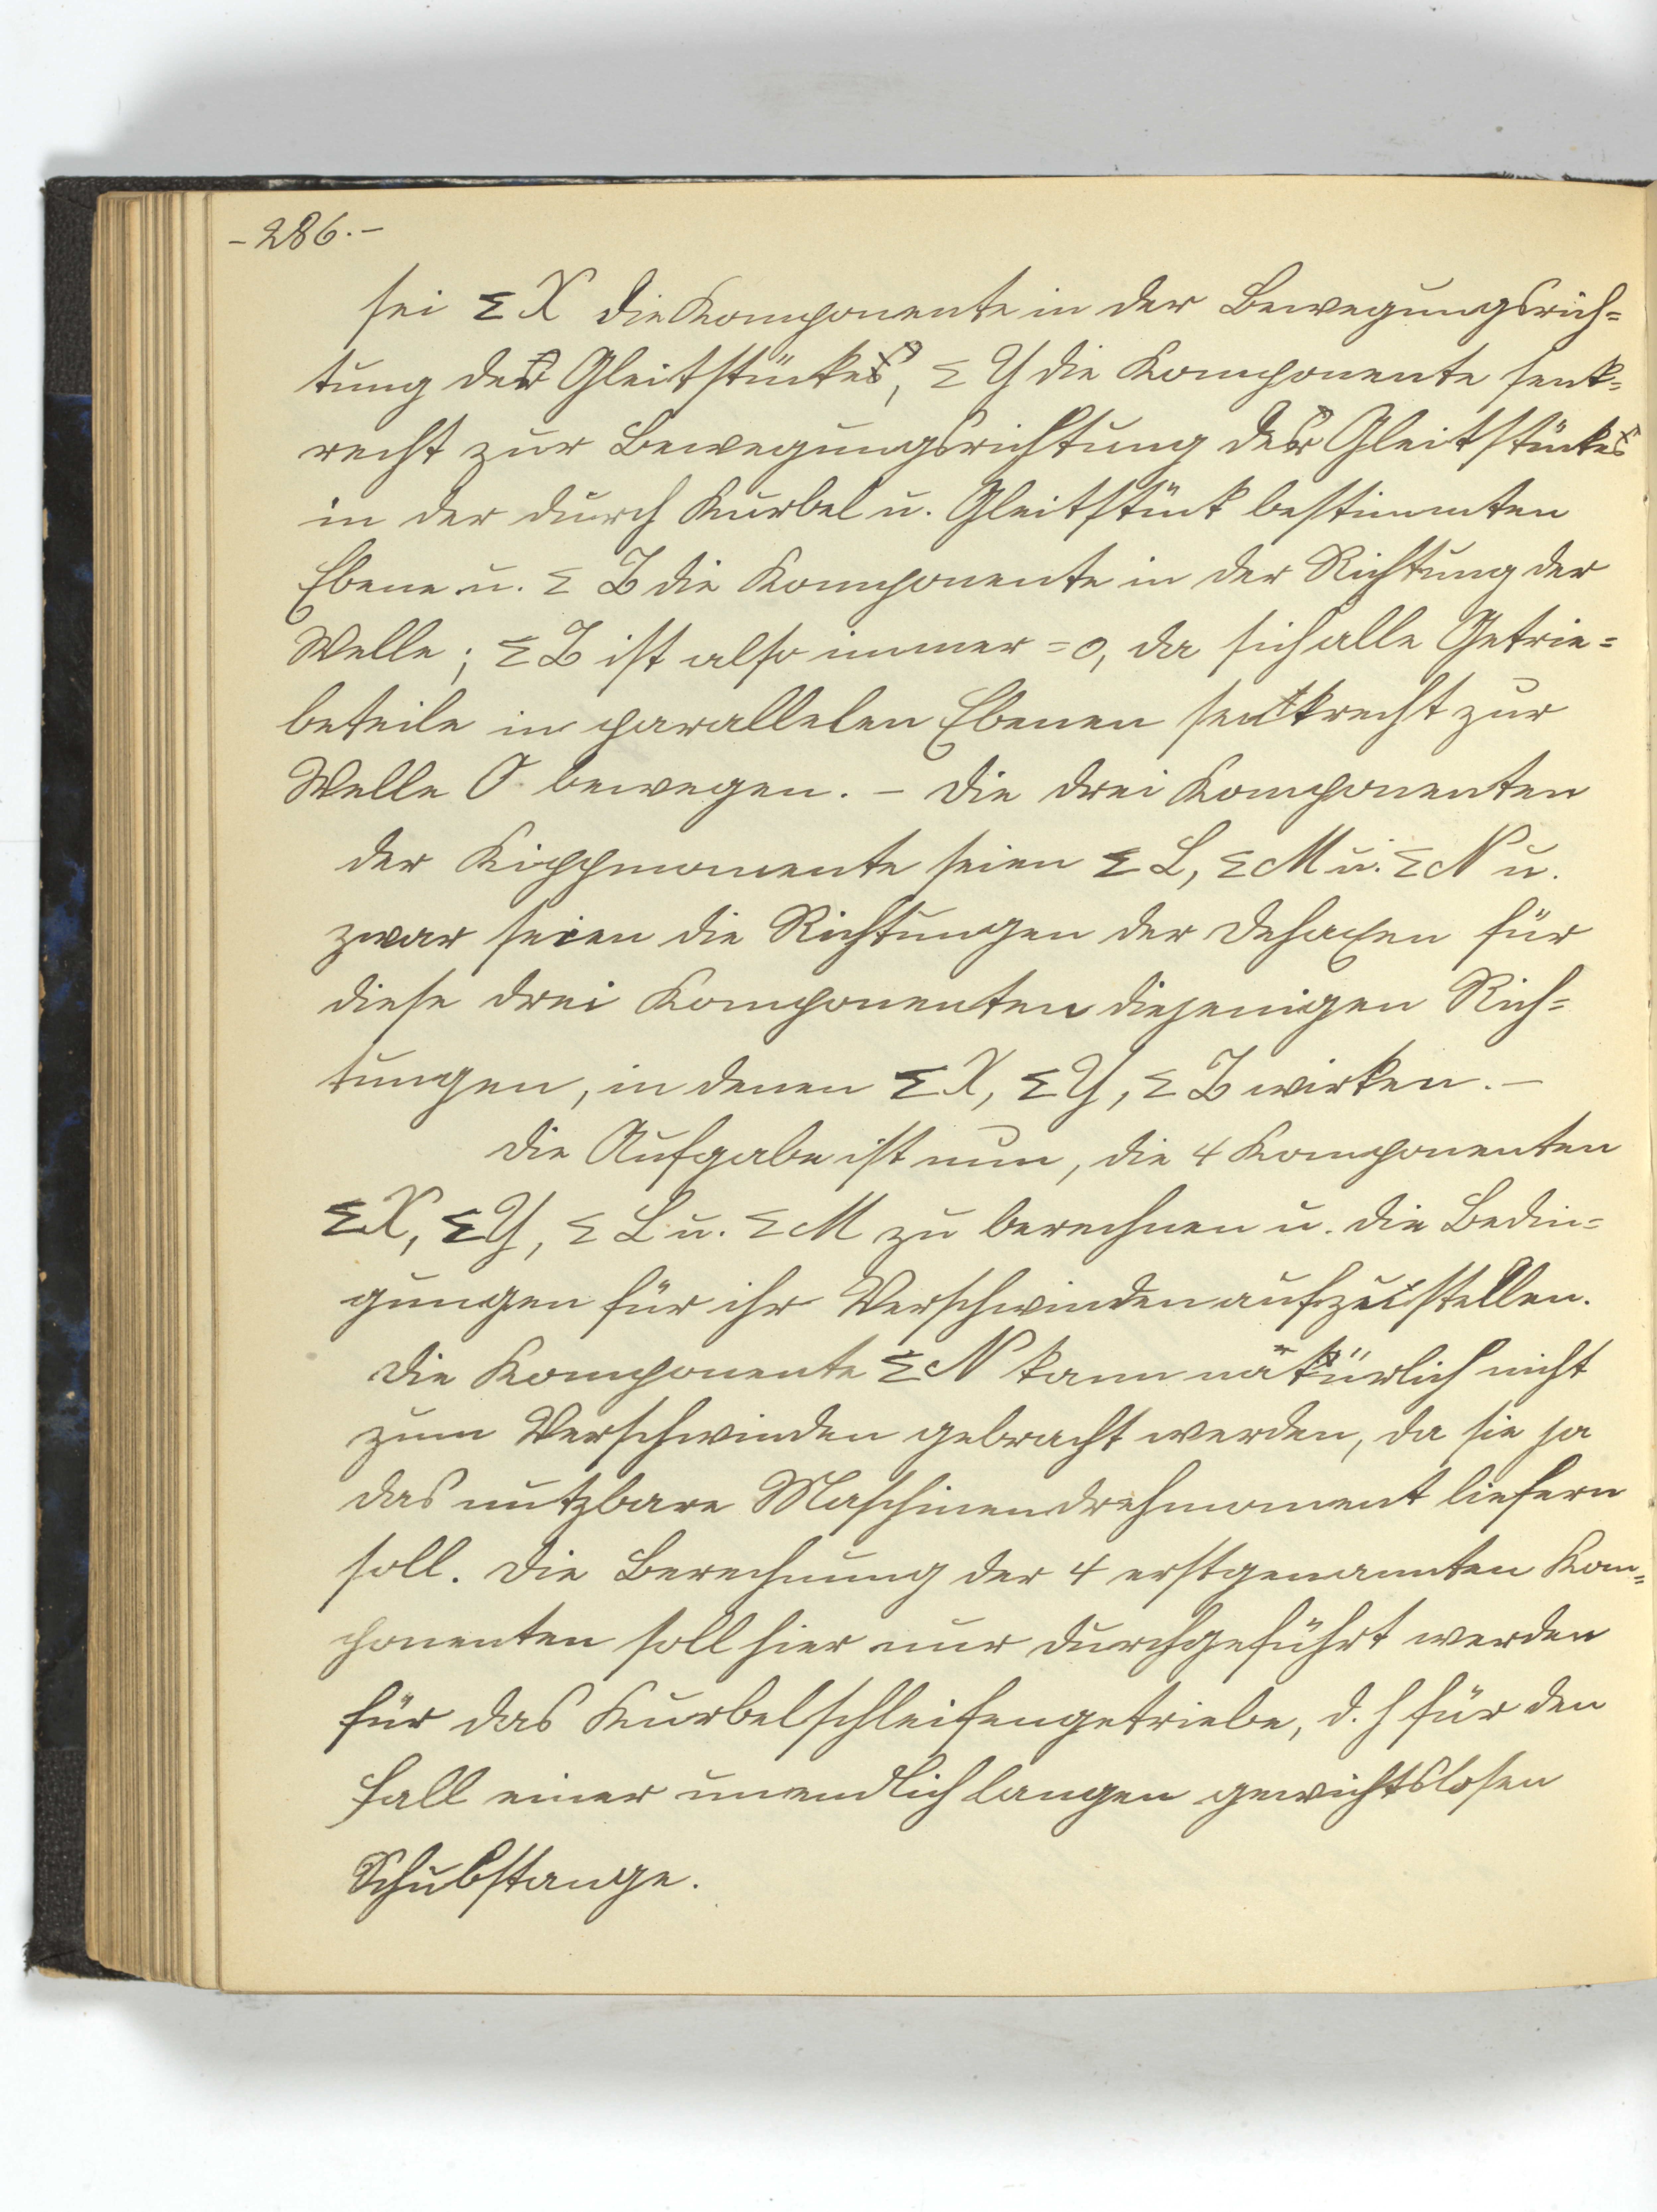 - 286. -
sei Σ X die Komponente in der Bewegungsrich=
tung des Gleitstückes, Σ Y die Komponente senk=
recht zur Bewegungsrichtung des Gleitstückes
in der durch Kurbel u. Gleitstück bestimmten
Ebene u. Σ Z die Komponente in der Richtung der
Welle; Σ Z ist also immer = 0, da sich alle Getrie=
beteile in parallelen Ebenen senkrecht zur
Welle O bewegen. - Die drei Komponenten
der Kippmomente seien Σ L, Σ M u. Σ N u.
zwar seien die Richtungen der Dehaxen für
diese drei Komponenten diejenigen Rich=
tungen, in denen Σ X, Σ Y, Σ Z wirken. -
Die Aufgabe ist nun, die 4 Komponenten
Σ X, Σ Y, Σ L u. Σ M zu berechnen u. die Bedin=
gungen für ihr Verschwinden aufzustellen.
Die Komponente Σ N kann natürlich nicht
zum Verschwinden gebracht werden, da sie ja
das nutzbare Maschinendrehmoment liefern
soll. Die Berechnung der 4 erstgenannten Kom=
ponenten soll hier nur durchgeführt werden
für das Kurbelschleifengetriebe, d. h für den
Fall einer unendlich langen gewichtslosen
Schubstange.